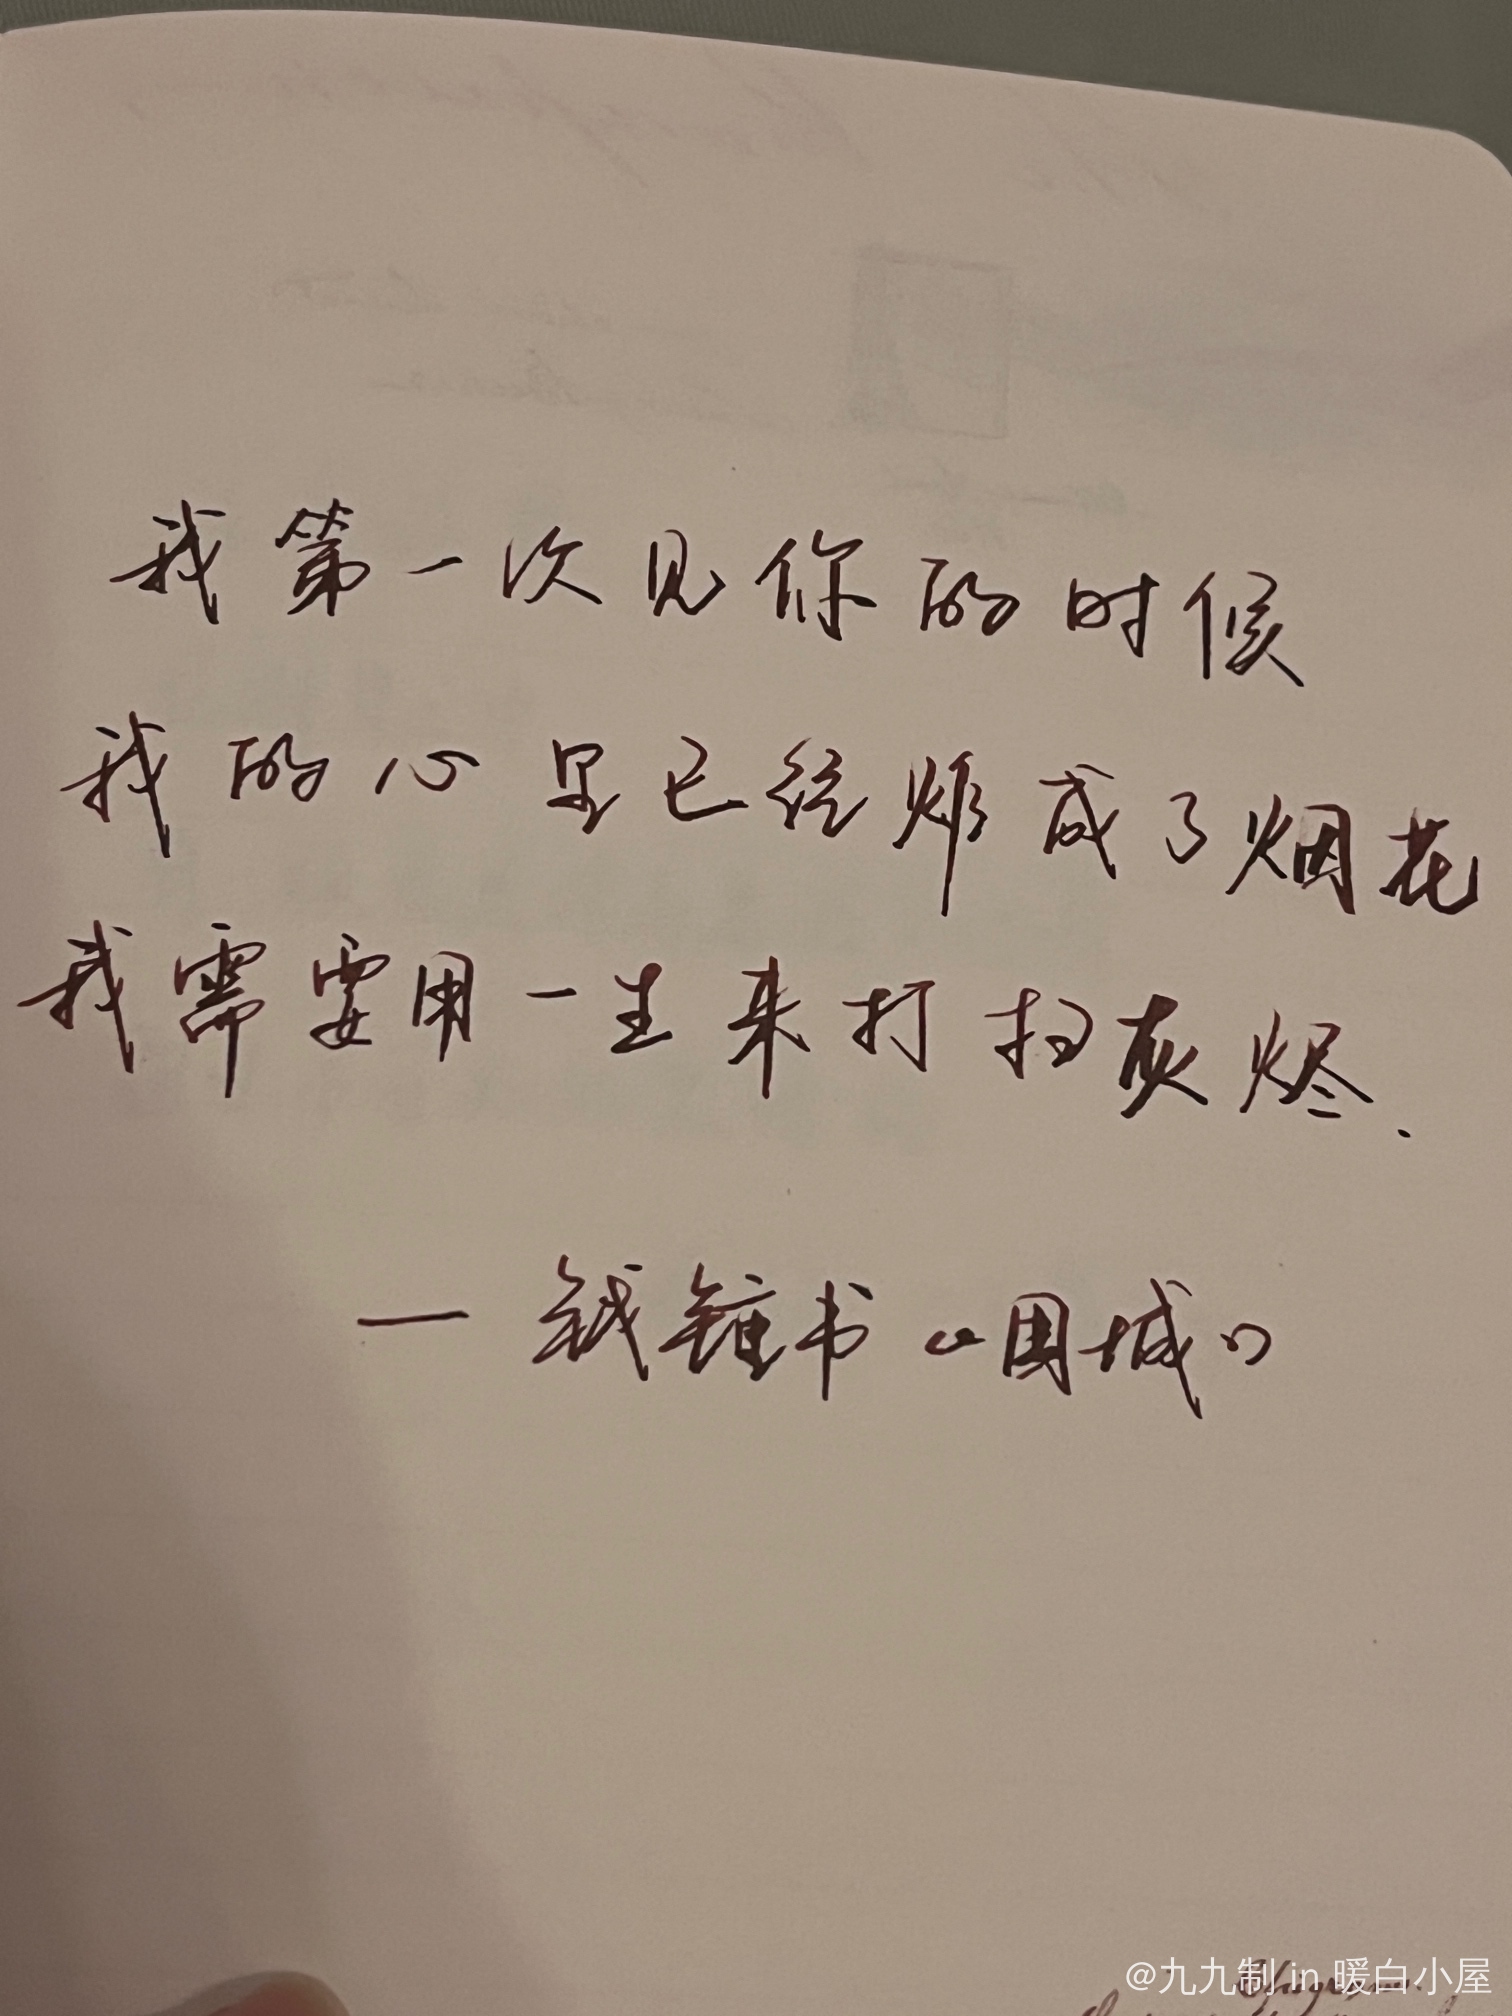 我第一次见你的时候
我的心里已经炸成了烟花
我需要用一生来打扫灰烬.
—钱锺书《围城》
@九九制 in 暖白小屋